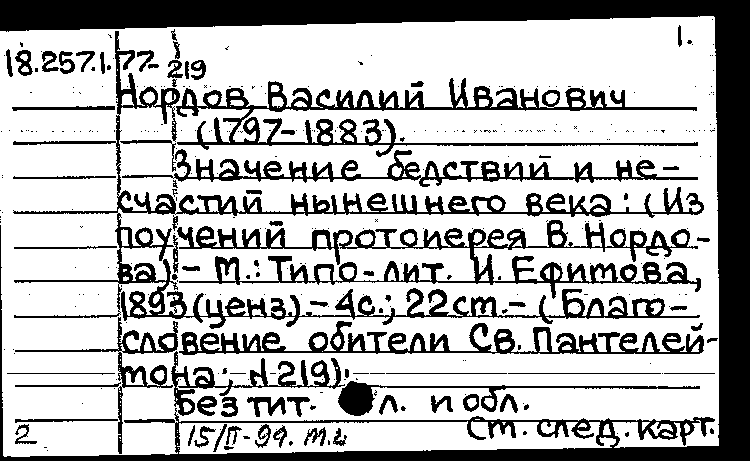 1.
18.257.1.77-219
Нордов, Василий Иванович
(1797-1883).
Значение бедствий и не-
счастий нынешнего века: (Из
поучений протоиерея В. Нордо-
ва).- М.: Типо-лит. И. Ефимова,
1893 (ценз.).- 4с.; 22см.- (Благо-
словение обители Св. Пантелей-
мона; N 219).
Без тит. л. и обл.
2
15/II-99. м.и
См. след. карт.